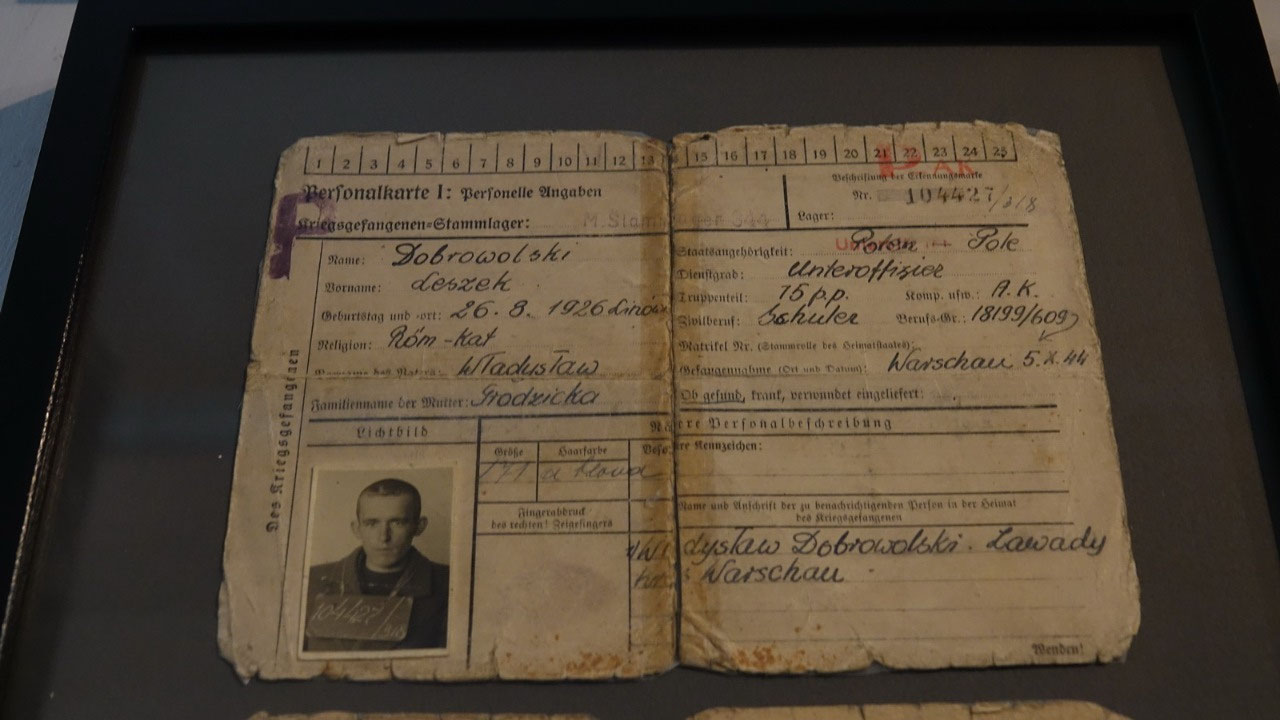 1 2 3 4 5 6 7 8 9 10 11 12 13 15 16 17 18 19 20 21 22 23 24 25
P AK
Personalkarte I: Personelle Angaben
Beschriftung der Erkennungsmarke
Nr. 104427/318
Kriegsgefangenen-Stammlager: M. Stammlager 344
Lager:
Des Kriegsgefangenen
Name: Dobrowolski
Vorname: Leszek
Geburtstag und -ort: 26. 8. 1926
Religion: Röm-Kat
Vorname des Vaters: Władysław
Familienname der Mutter: Grodzicka
Staatsangehörigkeit: Polen Pole
Dienstgrad: Unteroffizier
Truppenteil: 15 p.p. Komp. usw.: A.K.
Zivilberuf: Schüler Berufs-Gr.: 18199/609
Matrikel Nr. (Stammrolle des Heimatstaates):
Gefangennahme (Ort und Datum): Warschau 5.X.44
Ob gesund, krank, verwundet eingeliefert:
Lichtbild
Nähere Personalbeschreibung
Größe Haarfarbe Besondere Kennzeichen:
171
Fingerabdruck
des rechten! Zeigefingers
Name und Anschrift der zu benachrichtigenden Person in der Heimat
des Kriegsgefangenen
Władysław Dobrowolski. Zawady
Warschau
104427/318
Wenden!